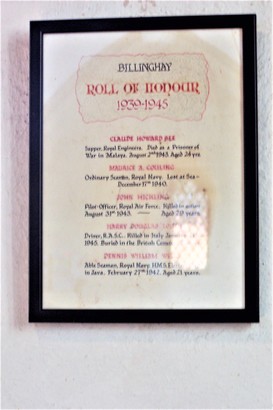 BILLINGHAY
ROLL OF HONOUR
1939-1945
CLAUDE HOWARD
Sapper, Royal Engineers. Died as a Prisoner of
War in Malaya, August 2nd 1943. Aged 24 yrs.
MAURICE A.
Ordinary Seaman, Royal Navy. Lost at Sea-
December 17th 1940.
JOHN
Pilot-Officer, Royal Air Force. Killed in action
August 31st 1943. Aged 20 years.
HARRY DOUGLAS
Driver, R.A.S.C. Killed in Italy
1945. Buried in the British
DENNIS WILLIAM
Able Seaman, Royal Navy. H.M.S.
in Java. February 27th 1942. Aged 21 years.